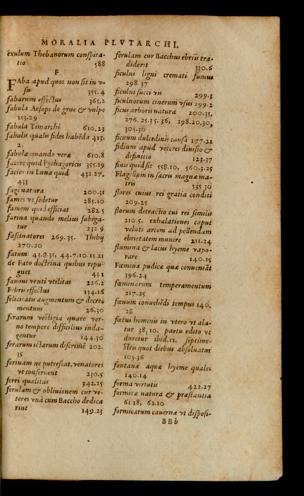 MORALIA PLVTARCHI.
exulum Thebanorum conspira-
tio 588
F
FAba apud quos non sit in v-
su 355.4
fabarum effectus 365.2
fabula Aesopi de grue & vulpe
113.29
fabula Timarchi 610.23
fabulis qualis fides habēda 415.
2.
fabula quando vera 610.8
facere quod Pythagoricis 355.19
facies in Luna quid 432.27.
433
fames vt sedetur 285.10
farina quando melius subiga-
tur 232.9
fascinatores 269.35. Thebij
270.20
fatum 43.8.31. 44.7.10.15.21
de Fato doctrina quibus repu-
gnet
fauni venti vtilitas 226.2
Febris effectus 134.16
felicitatis augmentum & decre-
mentum 26.30
ferarum vestigia quare ver-
no tempore difficilius inda-
gentur 244.30
ferarum ictarum discrimē 202.
15
ferinam ne putrescat, venatores
vt conseruent 230.5
ferri qualitas 242.15
ferulam & obliuionem cur ve-
teres vnà cum Baccho dedica
rint 149.23
ferulam cur Bacchus ebriis tra-
diderit 110.6
ficulni ligni cremati fumus
298.37
ficulni succi vis 299.3
ficulnorum cinerum vsus 299.2
ficus arboris natura 200.31,
276.25.35.36, 298.20.30,
303.30
ficuum dulcedinis causa 177.21
fidium apud veteres diuisio &
definitio 123.37
finis quid sit 558.10, 560.3.25
Flagellum in sacris magnæ ma-
tris 535.30
flores cuius rei gratia conditi
209.25
florum detractio cui rei similis
210.5. exhalationes caput
veluti arcem ad pellendam
ebrietatem munire 211.24
flumina & lacus hyeme vapo-
rare 140.15
Fœmina pudica quæ conueniāt
396.24
fœminarum temperamentum
217.25
fœtus hominis in vtero vt ala-
tur 38,10. partu edito vt
structus ibid.12. septime-
stris quot diebus absoluatur
103.36
fontana aqua hyeme quales
140.14
forma virtutis 422.27
formicæ natura & præstantia
61.28, 62.10
formicarum cauerna vt disposi-
BBb